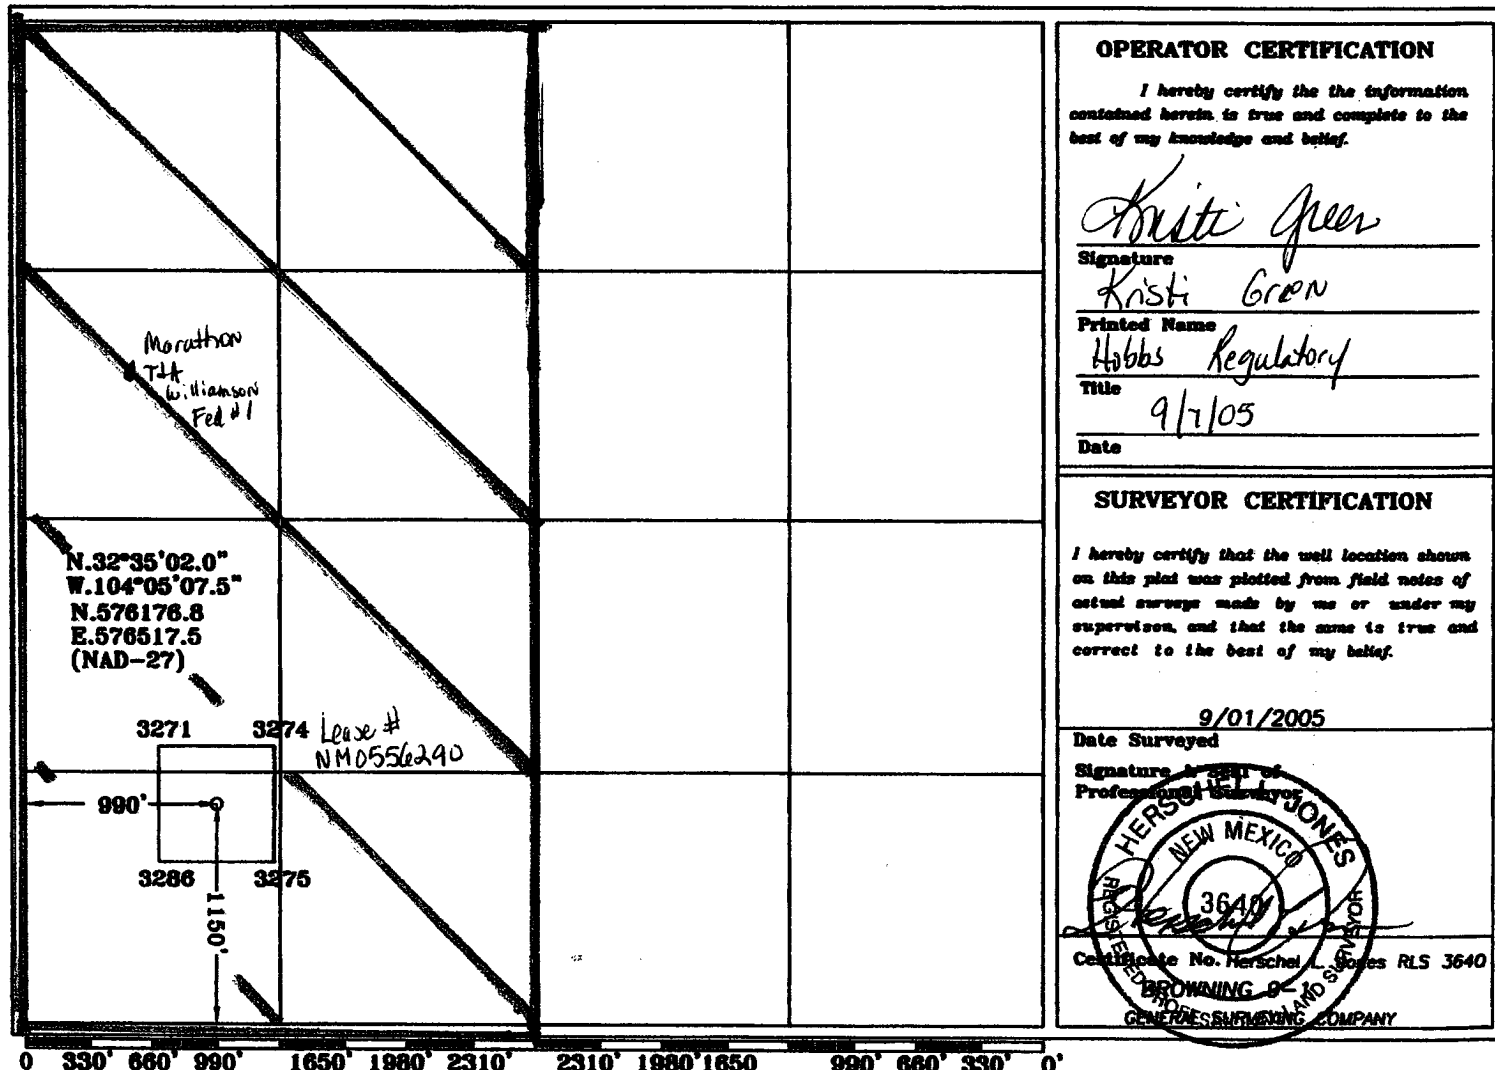 Marathon
T&A
Williamson
Fed #1
N.32°35'02.0"
W.104°05'07.5"
N.576176.8
E.576517.5
(NAD-27)
3271
3274
Lease #
NM0556290
990'
3286
3275
1150'
0 330' 660' 990' 1650' 1980' 2310' 2310' 1980' 1650' 990' 660' 330' 0'
OPERATOR CERTIFICATION
I hereby certify the the information
contained herein is true and complete to the
best of my knowledge and belief.
Kristi Green
Signature
Kristi Green
Printed Name
Hobbs Regulatory
Title
9/7/05
Date
SURVEYOR CERTIFICATION
I hereby certify that the well location shown
on this plat was plotted from field notes of
actual surveys made by me or under my
supervison, and that the same is true and
correct to the best of my belief.
9/01/2005
Date Surveyed
Signature & Seal of
Professional Surveyor
HERSCHEL L. JONES
NEW MEXICO
3640
REGISTERED PROFESSIONAL LAND SURVEYOR
Certificate No. Herschel L. Jones RLS 3640
BROWNING 9-1
GENERAL SURVEYING COMPANY